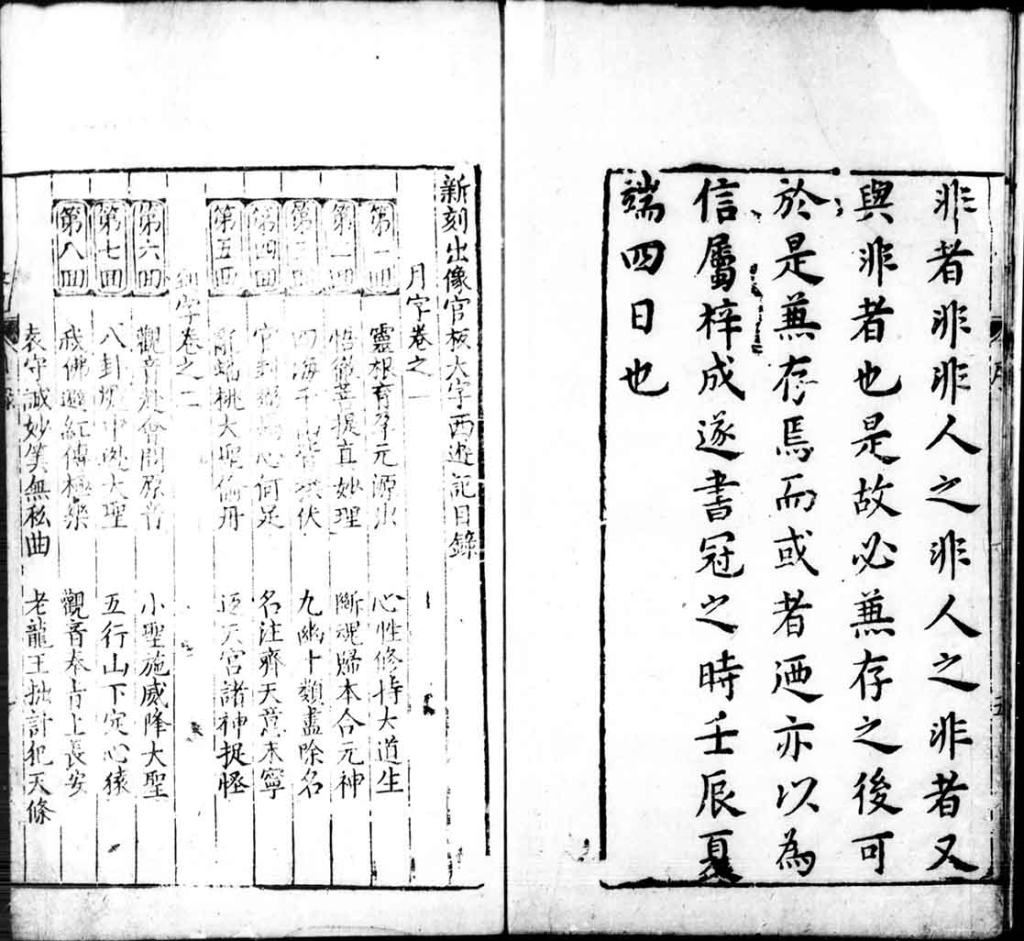 非者非非人之非人之非者又
與非者也是故必兼存之後可
於是兼存焉而或者迺亦以為
信屬梓成遂書冠之時壬辰夏
端四日也
新刻出像官板大字西遊記目錄
月字卷之一
第一回 靈根育孕元源出 心性修持大道生
第二回 悟徹菩提真妙理 斷魂歸本合元神
第三回 四海千山皆拱伏 九幽十類盡除名
第四回 官封弼馬心何足 名注齊天意未寧
第五回 亂蟠桃大聖偷丹 反天宮諸神捉怪
到字卷之二
第六回 觀音赴會問原音 小聖施威降大聖
第七回 八卦爐中逃大聖 五行山下定心猿
第八回 我佛造經傳極樂 觀音奉旨上長安
袁守誠妙筭無私曲 老龍王拙計犯天條